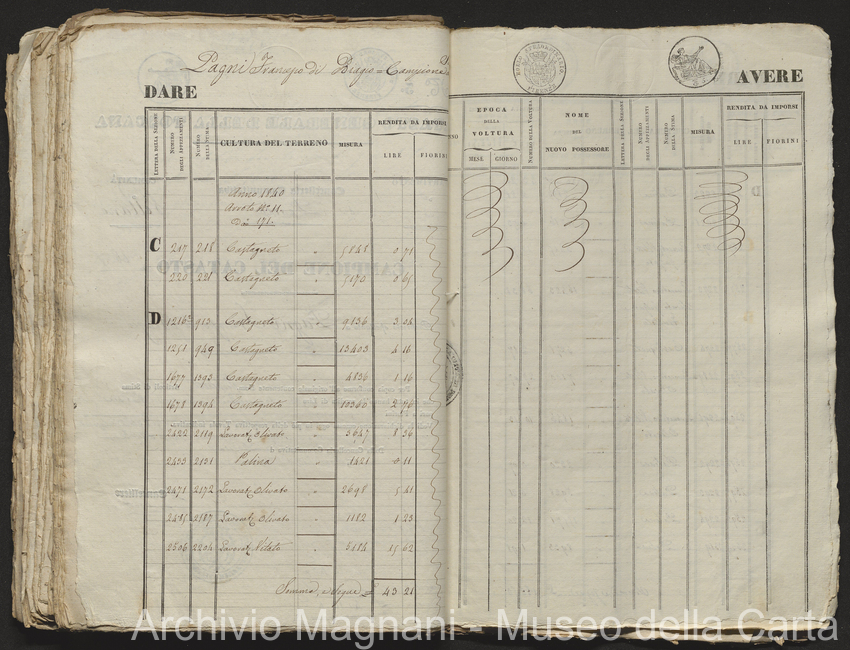 Pagni Transepo di Biagio = Campione
DARE
AVERE
LETTERA DELLA SEZIONE
NUMERO DEGLI APPEZZAMENTI
NUMERO DELLA STIMA
CULTURA DEL TERRENO
MISURA
RENDITA DA IMPORSI
LIRE
FIORINI
EPOCA
DELLA
VOLTURA
MESE
GIORNO
NUMERO DELLA VOLTURA
NOME
DEL
NUOVO POSSESSORE
LETTERA DELLA SEZIONE
NUMERO DEGLI APPEZZAMENTI
NUMERO DELLA STIMA
MISURA
RENDITA DA IMPORSI
LIRE
FIORINI
Anno 1840
Arroto No. 11.
171.
C 217 218 Castagneto 5848 0 71
220 221 Castagneto 5170 0 65
D 1216 913 Castagneto 9836 3 34
1251 949 Castagneto 13403 4 16
1677 1393 Castagneto 4836 1 16
1678 1394 Castagneto 10360 2 76
2422 2119 Lavorat. Olivato 3647 8 36
2433 2131 1421 0 11
2471 2172 Lavorat. Olivato 2698 5 41
2485 2187 Lavorat. Olivato 1182 1 23
2506 2204 Lavorat. Vitato 5184 15 62
Somma, e Segue = £ 43 21
Archivio Magnani - Museo della Carta